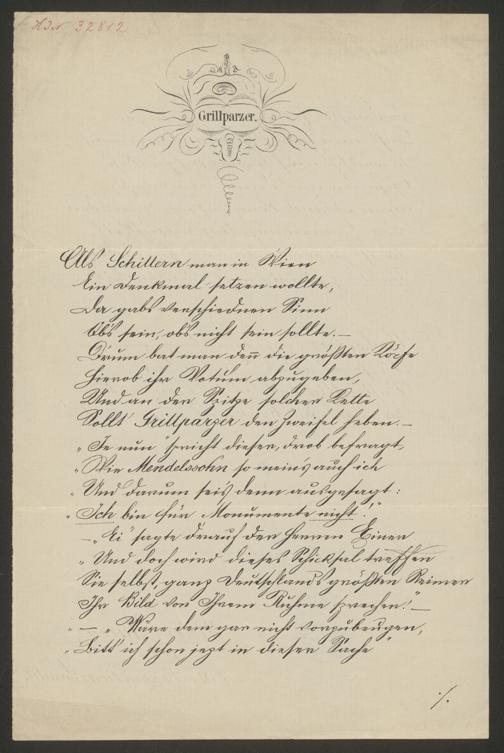 HIN 32812
Grillparzer.
Als Schillern man in Wien
Ein Denkmal setzen wollte,
Da gabs verschiednen Sinn
Obs sein, obs nicht sein sollte.—
Drum bat man den̅ die größten Köpfe
Hierob ihr Votum abzugeben,
Und an der Spitze solcher
Sollt Grillparzer den Zweifel heben.—
„Je nun" spricht dieser, drob befragt,
„Wie Mendelssohn so meins auch ich
„Und darum seis denn ausgesagt:
„Ich bin für Monumente nicht!"
—„Ei" sagte drauf der Herren Einer
„Und doch wird dieses Schicksal treffen
Sie selbst ganz Deutschlands größten Reimer
Ihr Bild von Ihrem Ruhme sprechen."—
„— „Wäre dem gar nicht vorzubeugen,
„Bitt' ich schon jezt in dieser Sache"
·/.